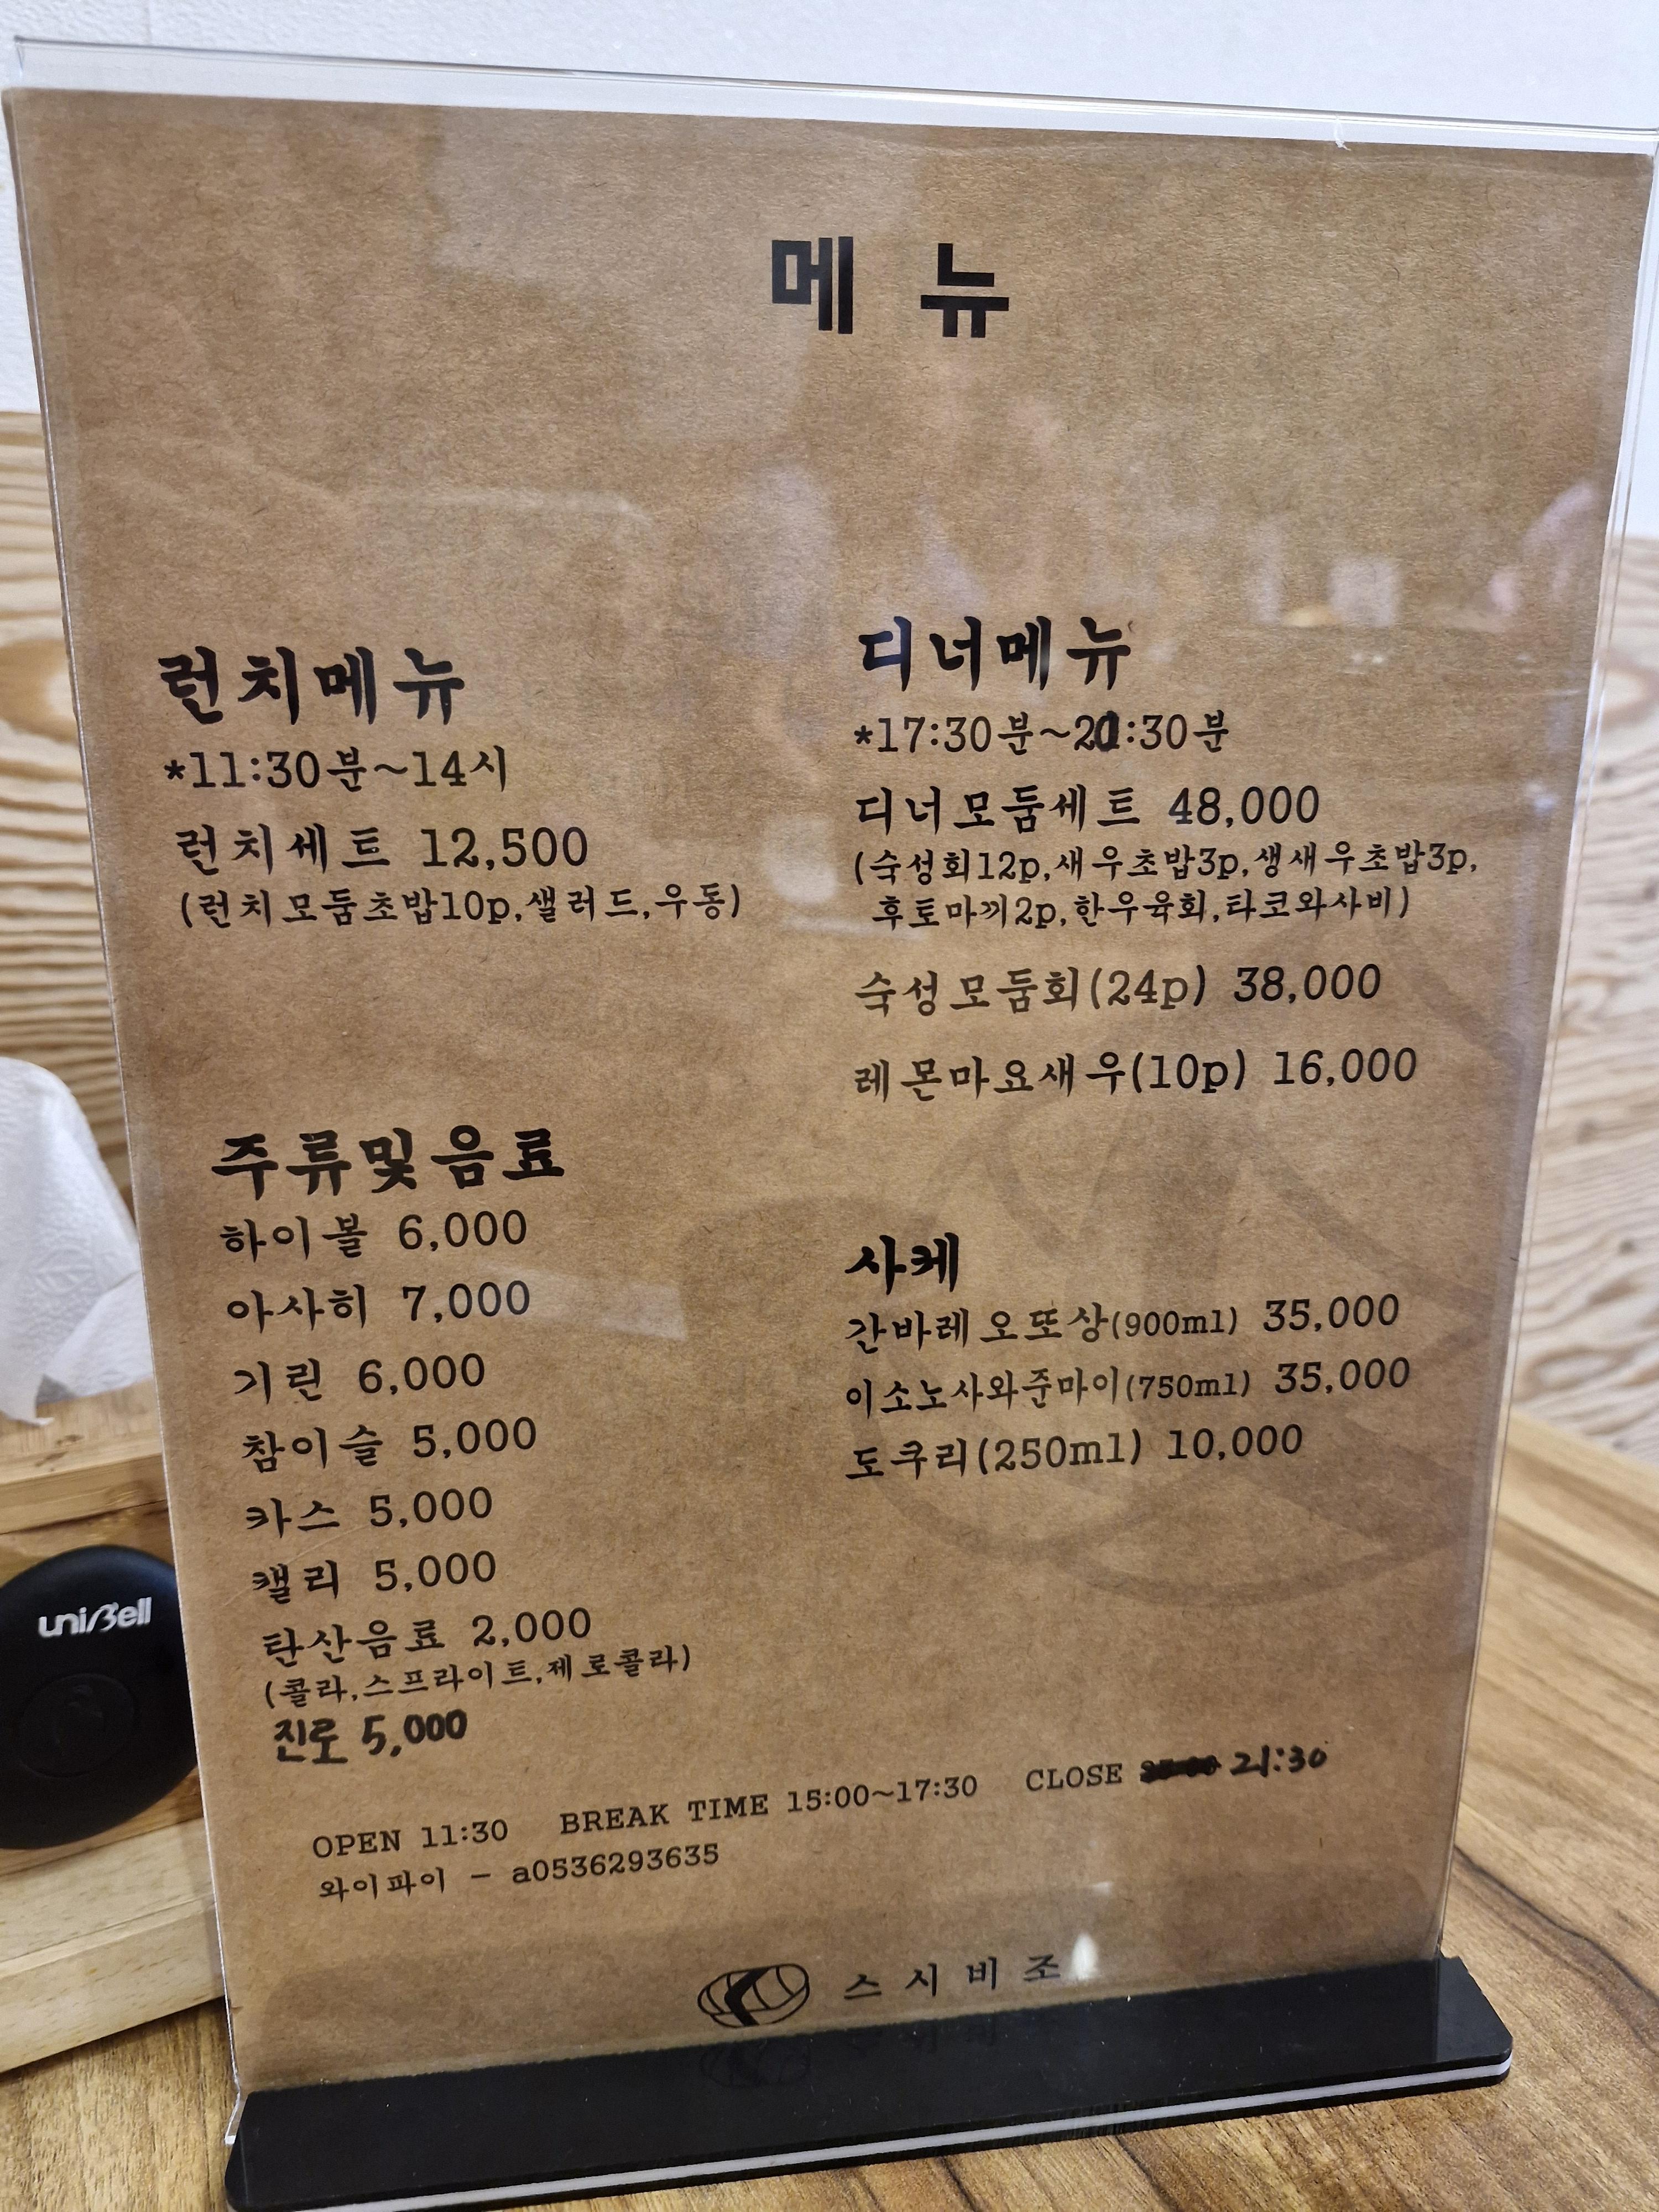 메뉴
런치메뉴
*11:30분~14시
런치세트 12,500
(런치모둠초밥10p,샐러드,우동)
디너메뉴
*17:30분~20:30분
디너모둠세트 48,000
(숙성회12p,새우초밥3p,생새우초밥3p,
후토마끼2p,한우육회,타코와사비)
숙성모둠회(24p) 38,000
레몬마요새우(10p) 16,000
주류및음료
하이볼 6,000
아사히 7,000
기린 6,000
참이슬 5,000
카스 5,000
캘리 5,000
탄산음료 2,000
(콜라,스프라이트,제로콜라)
진로 5,000
사케
간바레오또상(900ml) 35,000
이소노사와준마이(750ml) 35,000
도쿠리(250ml) 10,000
OPEN 11:30 BREAK TIME 15:00~17:30 CLOSE 21:30
와이파이 - a0536293635
스시비조
uniBell